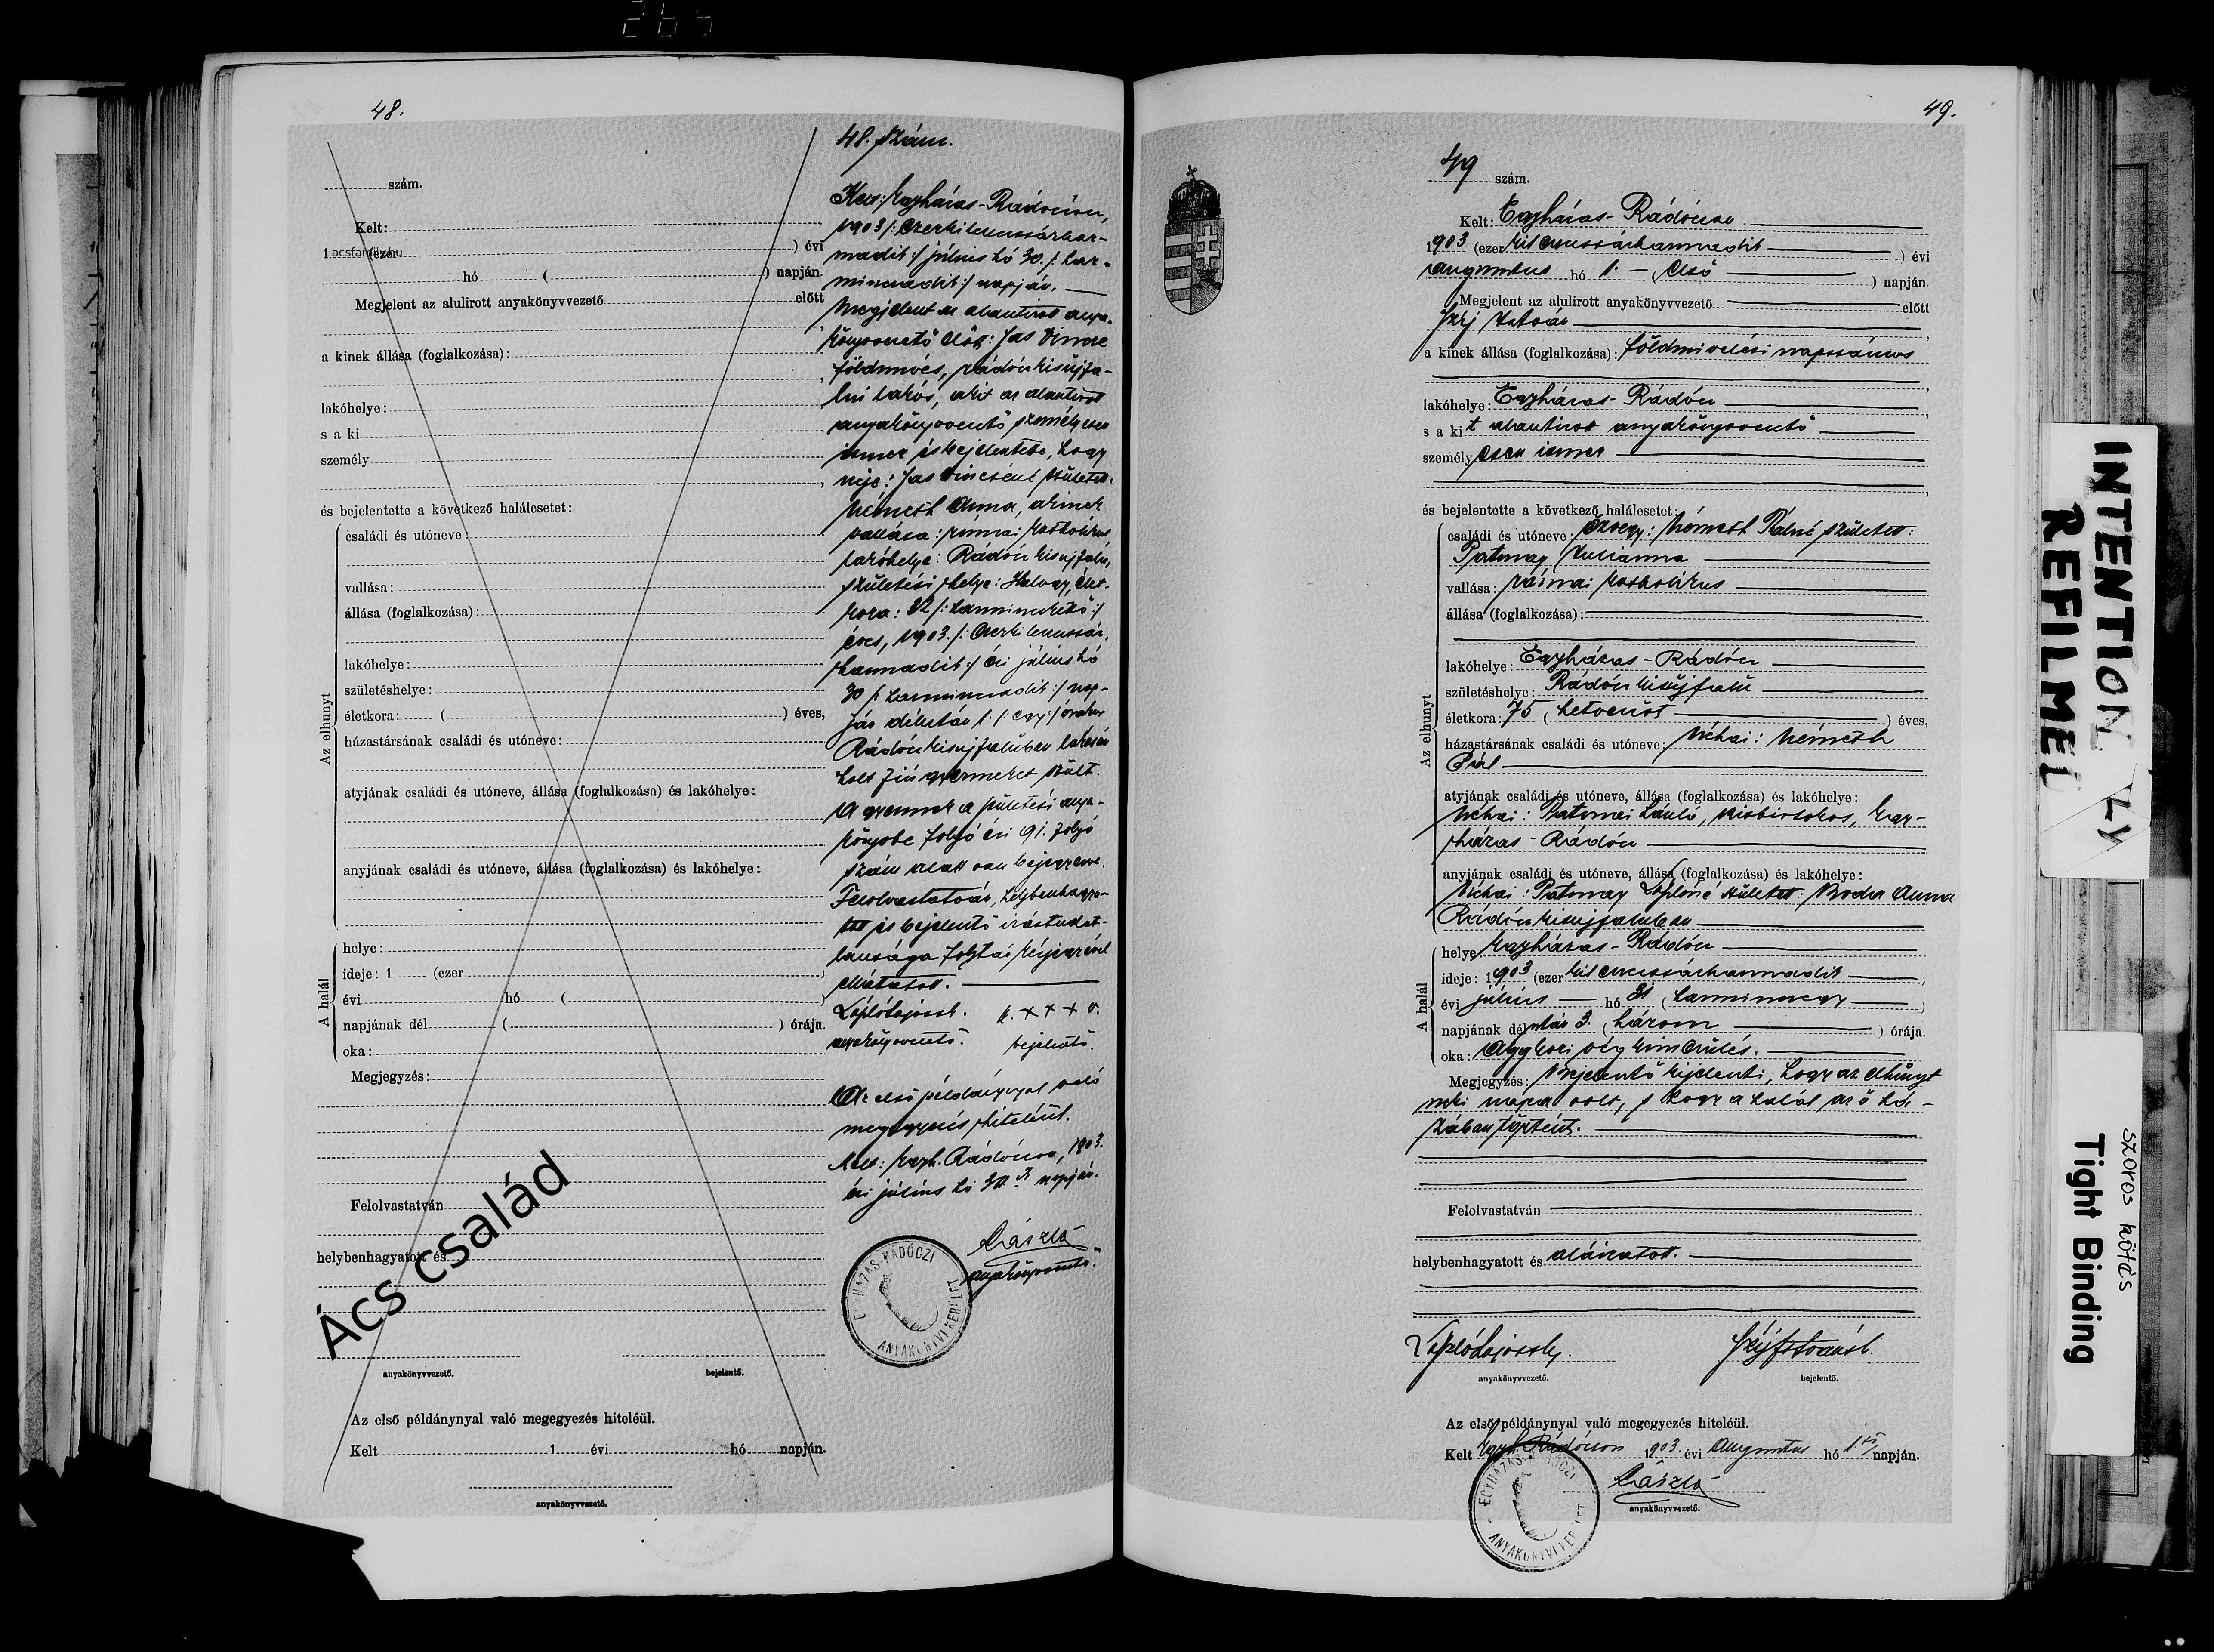 48.
48. szám.
szám.
Kelt:
1 (ezer ) évi
acsfamily.hu
hó ( ) napján.
Megjelent az alulirott anyakönyvvezető előtt
a kinek állása (foglalkozása):
lakóhelye:
s a ki
személy
és bejelentette a következő halálesetet:
Az elhunyt
családi és utóneve:
vallása:
állása (foglalkozása):
lakóhelye:
születéshelye:
életkora: ( ) éves,
házastársának családi és utóneve:
atyjának családi és utóneve, állása (foglalkozása) és lakóhelye:
anyjának családi és utóneve, állása (foglalkozása) és lakóhelye:
A halál
helye:
ideje: 1 (ezer )
évi hó ( )
napjának dél ( ) órája.
oka:
Megjegyzés:
Felolvastatván
helybenhagyatott és
anyakönyvvezető. bejelentő.
Az első példánynyal való megegyezés hiteléül.
Kelt 1 évi hó napján.
anyakönyvvezető.
Ács család
Kelt: Egyházas-Rádóczon,
1903 /: ezerkilencszázhar-
madik :/ július hó 30. /: har-
minczadik :/ napján.
Megjelent az alantirott anya-
könyvvezető előtt: Jas Vincze
földmüves, rádóczkisujfa-
lui lakós, akit az alantirott
anyakönyvvezető személyesen
ismer és bejelentette, hogy
neje: Jas Vinczéné született:
Németh Anna, akinek
vallása: római katholikus
lakóhelye: Rádóczkisujfalu,
születési helye: Halogy, élet-
kora: 32 /: harminckettő :/
éves, 1903. /: ezerkilencszáz-
harmadik :/ évi július hó
30 /: harminczadik :/ nap-
ján délután 1. /: egy :/ órakor
Rádóczkisujfaluban lakásán
holt fiúgyermeket szült.
A gyermek a születési anya-
könyvbe folyó évi 91. folyó
szám alatt van bejegyezve.
Felolvastatván, helybenhagya-
tott és bejelentő irástudat-
lansága folytán kézjegyével
elláttatott.
László Lajos sk. k. x x x v.
anyakönyvvezető. bejelentő.
Az első példánynyal való
megegyezés hiteléül.
Kelt: Egyh. Rádóczon, 1903.
évi július hó 30. napján.
László
anyakönyvvezető.
EGYHÁZAS-RÁDÓCZI
ANYAKÖNYVI KERÜLET
49.
49 szám.
Kelt: Egyházas-Rádóczon
1903 (ezer kilenczszázharmadik ) évi
augusztus hó 1. (első ) napján.
Megjelent az alulirott anyakönyvvezető előtt
Szíj István
a kinek állása (foglalkozása): földmivelési napszámos
lakóhelye: Egyházas-Rádócz
s a kit alantirott anyakönyvvezető
személyesen ismer
és bejelentette a következő halálesetet:
Az elhunyt
családi és utóneve: özvegy: Németh Pálné született:
Patonay Julianna
vallása: római katholikus
állása (foglalkozása):
lakóhelye: Egyházas-Rádócz
születéshelye: Rádóczkisujfalu
életkora: 75 (hetvenöt ) éves,
házastársának családi és utóneve: Néhai: Németh
Pál
atyjának családi és utóneve, állása (foglalkozása) és lakóhelye:
Néhai: Patonai László, kisbirtokos, Egy-
házas-Rádócz
anyjának családi és utóneve, állása (foglalkozása) és lakóhelye:
Néhai: Patonay Lászlóné született: Boda Anna
Rádóczkisujfaluban
A halál
helye Egyházas-Rádócz
ideje: 1903 (ezer kilenczszázharmadik )
évi július hó 31 (harminczegy )
napjának délután 3. (három ) órája.
oka: Aggkori végkimerülés.
Megjegyzés: Bejelentő kijelenti, hogy az elhúnyt
neki napa volt, s hogy a halál az ő há-
zában történt.
Felolvastatván
helybenhagyatott és aláiratott.
László Lajos sk. Szíj István sk.
anyakönyvvezető. bejelentő.
Az első példánynyal való megegyezés hiteléül.
Kelt Egyh. Rádóczon 1903. évi Augusztus hó 1 napján.
László
anyakönyvvezető.
EGYHÁZAS-RÁDÓCZI
ANYAKÖNYVI KERÜLET
INTENTIONALLY
REFILMED
szoros kötés
Tight Binding